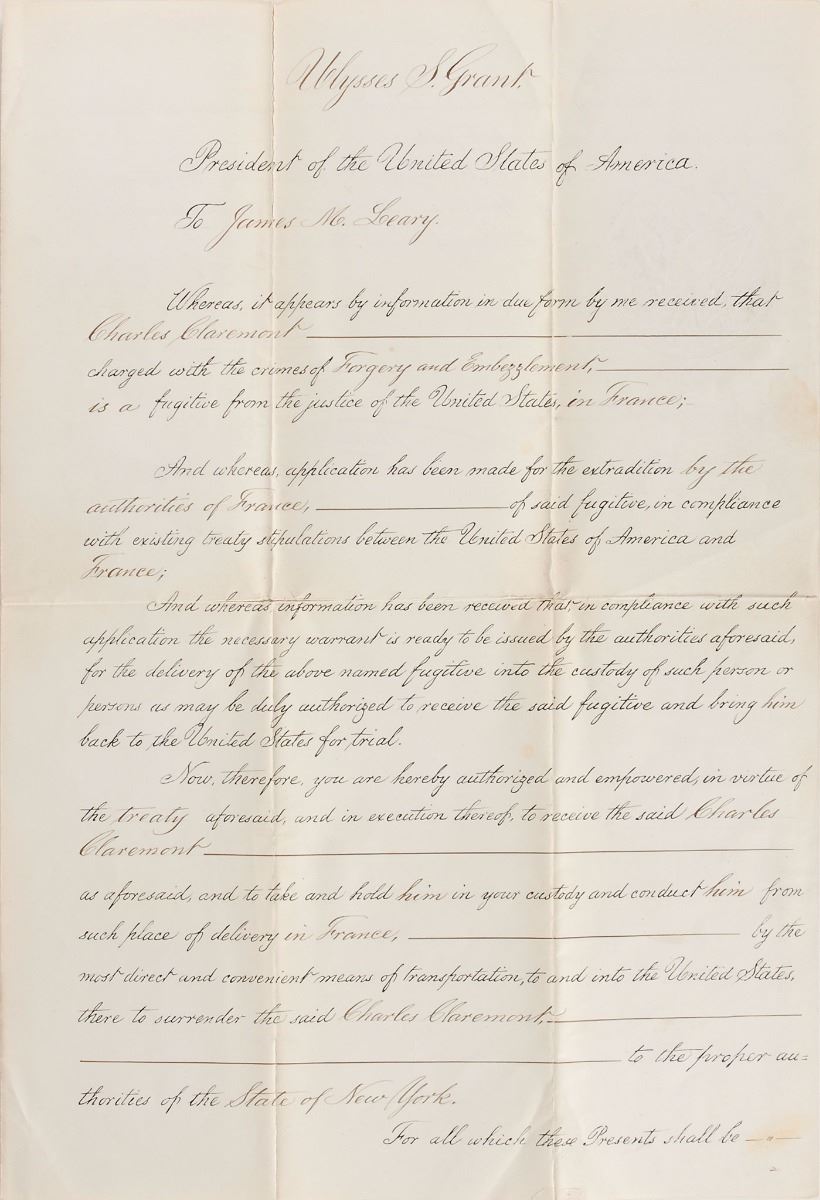 Ulysses S. Grant.
President of the United States of America.
To James M. Leary.
Whereas, it appears by information in due form by me received, that
Charles Claremont
charged with the crimes of Forgery and Embezzlement,
is a fugitive from the justice of the United States, in France;
And whereas, application has been made for the extradition by the
authorities of France, of said fugitive, in compliance
with existing treaty stipulations between the United States of America and
France;
And whereas information has been received that, in compliance with such
application the necessary warrant is ready to be issued by the authorities aforesaid,
for the delivery of the above named fugitive into the custody of such person or
persons as may be duly authorized to receive the said fugitive and bring him
back to the United States for trial.
Now, therefore, you are hereby authorized and empowered, in virtue of
the treaty aforesaid, and in execution thereof, to receive the said Charles
Claremont
as aforesaid, and to take and hold him in your custody and conduct him from
such place of delivery in France, by the
most direct and convenient means of transportation, to and into the United States,
there to surrender the said Charles Claremont,
to the proper au=
thorities of the State of New York.
For all which these Presents shall be